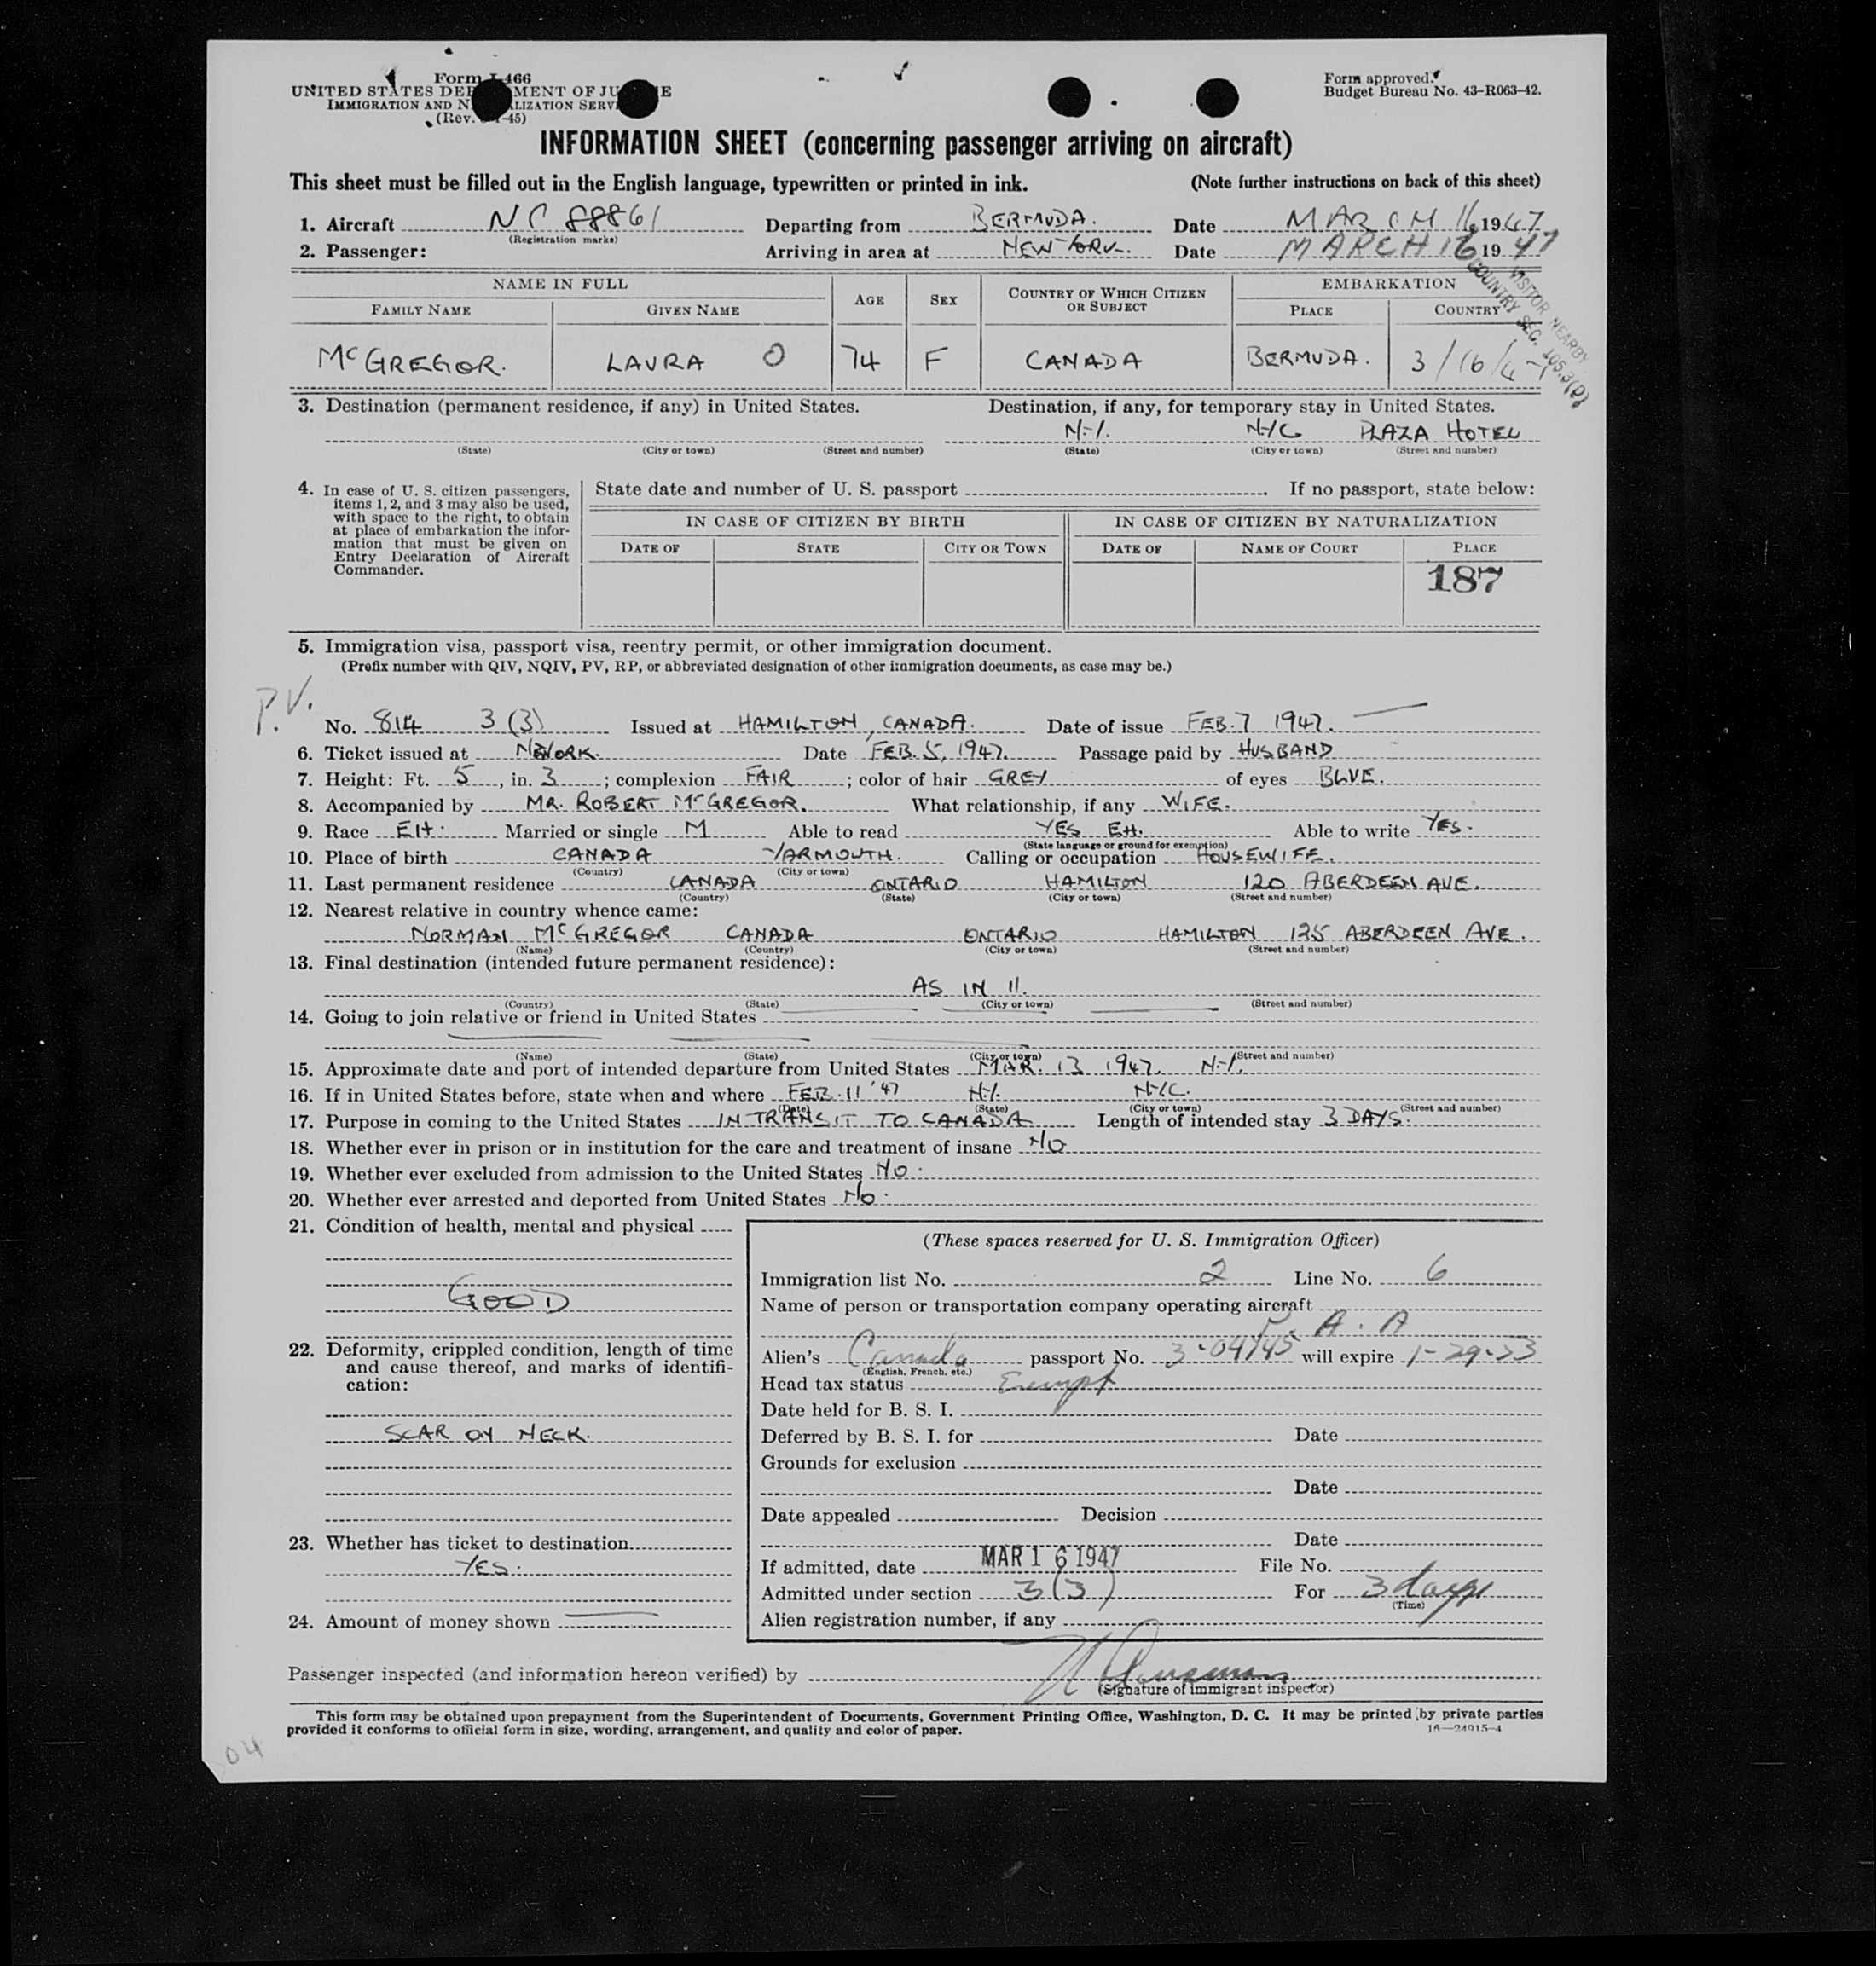 Form I-466
UNITED STATES DEP MENT OF JU E
IMMIGRATION AND N LIZATION SERV
(Rev. -45)
Form approved.
Budget Bureau No. 43-R063-42.
INFORMATION SHEET (concerning passenger arriving on aircraft)
This sheet must be filled out in the English language, typewritten or printed in ink. (Note further instructions on back of this sheet)
1. Aircraft NC 88861 Departing from BERMUDA. Date MARCH 16, 1947
(Registration marks)
2. Passenger: Arriving in area at NEW YORK. Date MARCH 16 1947
VISITOR NEARBY
COUNTRY SEC. 105.3(D)
NAME IN FULL AGE SEX COUNTRY OF WHICH CITIZEN OR SUBJECT EMBARKATION
FAMILY NAME GIVEN NAME PLACE COUNTRY
McGREGOR. LAURA O 74 F CANADA BERMUDA. 3/16/47
3. Destination (permanent residence, if any) in United States. Destination, if any, for temporary stay in United States.
N.Y. NYC PLAZA HOTEL
(State) (City or town) (Street and number) (State) (City or town) (Street and number)
4. In case of U. S. citizen passengers, items 1, 2, and 3 may also be used, with space to the right, to obtain at place of embarkation the information that must be given on Entry Declaration of Aircraft Commander.
State date and number of U. S. passport . If no passport, state below:
IN CASE OF CITIZEN BY BIRTH IN CASE OF CITIZEN BY NATURALIZATION
DATE OF STATE CITY OR TOWN DATE OF NAME OF COURT PLACE
187
5. Immigration visa, passport visa, reentry permit, or other immigration document.
(Prefix number with QIV, NQIV, PV, RP, or abbreviated designation of other immigration documents, as case may be.)
P.V.
No. 814 3(3) Issued at HAMILTON, CANADA. Date of issue FEB. 7 1947.
6. Ticket issued at NEWYORK. Date FEB. 5, 1947. Passage paid by HUSBAND
7. Height: Ft. 5, in. 3; complexion FAIR; color of hair GREY of eyes BLUE.
8. Accompanied by MR. ROBERT McGREGOR. What relationship, if any WIFE.
9. Race EH. Married or single M Able to read YES EH. Able to write YES.
(State language or ground for exemption)
10. Place of birth CANADA YARMOUTH. Calling or occupation HOUSEWIFE.
(Country) (City or town)
11. Last permanent residence CANADA ONTARIO HAMILTON 120 ABERDEEN AVE.
(Country) (State) (City or town) (Street and number)
12. Nearest relative in country whence came:
NORMAN McGREGOR CANADA ONTARIO HAMILTON 125 ABERDEEN AVE.
(Name) (Country) (City or town) (Street and number)
13. Final destination (intended future permanent residence):
AS IN 11.
(Country) (State) (City or town) (Street and number)
14. Going to join relative or friend in United States
(Name) (State) (City or town) (Street and number)
15. Approximate date and port of intended departure from United States MAR. 13 1947. N.Y.
16. If in United States before, state when and where FEB. 11 '47 N.Y. NYC.
(Date) (State) (City or town) (Street and number)
17. Purpose in coming to the United States IN TRANSIT TO CANADA Length of intended stay 3 DAYS.
18. Whether ever in prison or in institution for the care and treatment of insane NO
19. Whether ever excluded from admission to the United States NO.
20. Whether ever arrested and deported from United States NO.
21. Condition of health, mental and physical
GOOD
22. Deformity, crippled condition, length of time and cause thereof, and marks of identification:
SCAR ON NECK.
23. Whether has ticket to destination
YES.
24. Amount of money shown
(These spaces reserved for U. S. Immigration Officer)
Immigration list No. 2 Line No. 6
Name of person or transportation company operating aircraft
P. A. A
Alien's Canada passport No. 3-04145 will expire
(English, French, etc.)
Head tax status Exempt
Date held for B. S. I.
Deferred by B. S. I. for Date
Grounds for exclusion
Date
Date appealed Decision
Date
If admitted, date MAR 16 1947 File No.
Admitted under section 3(3) For 3 days
(Time)
Alien registration number, if any
Passenger inspected (and information hereon verified) by
(Signature of immigrant inspector)
This form may be obtained upon prepayment from the Superintendent of Documents, Government Printing Office, Washington, D. C. It may be printed by private parties
provided it conforms to official form in size, wording, arrangement, and quality and color of paper. 16—24915-4
04